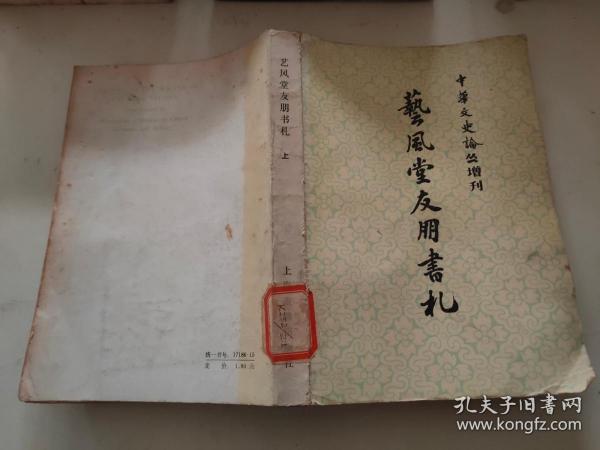 中华文史論丛增刊
藝風堂友朋書札
艺风堂友朋书札
上
上
社
统一书号: 17186·15
定价: 1.80元
孔夫子旧书网
www.kongfz.com